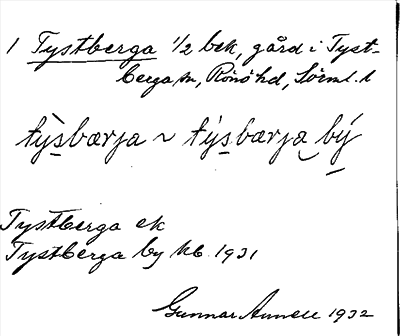 1 Tystberga 1/2 bek, gård i Tyst-
berga sn, Rönö hd, Sörml. l
tỳsbærja ~ týsbærja bý
Tystberga ek
Tystberga by kb. 1931
Gunnar Annell 1932